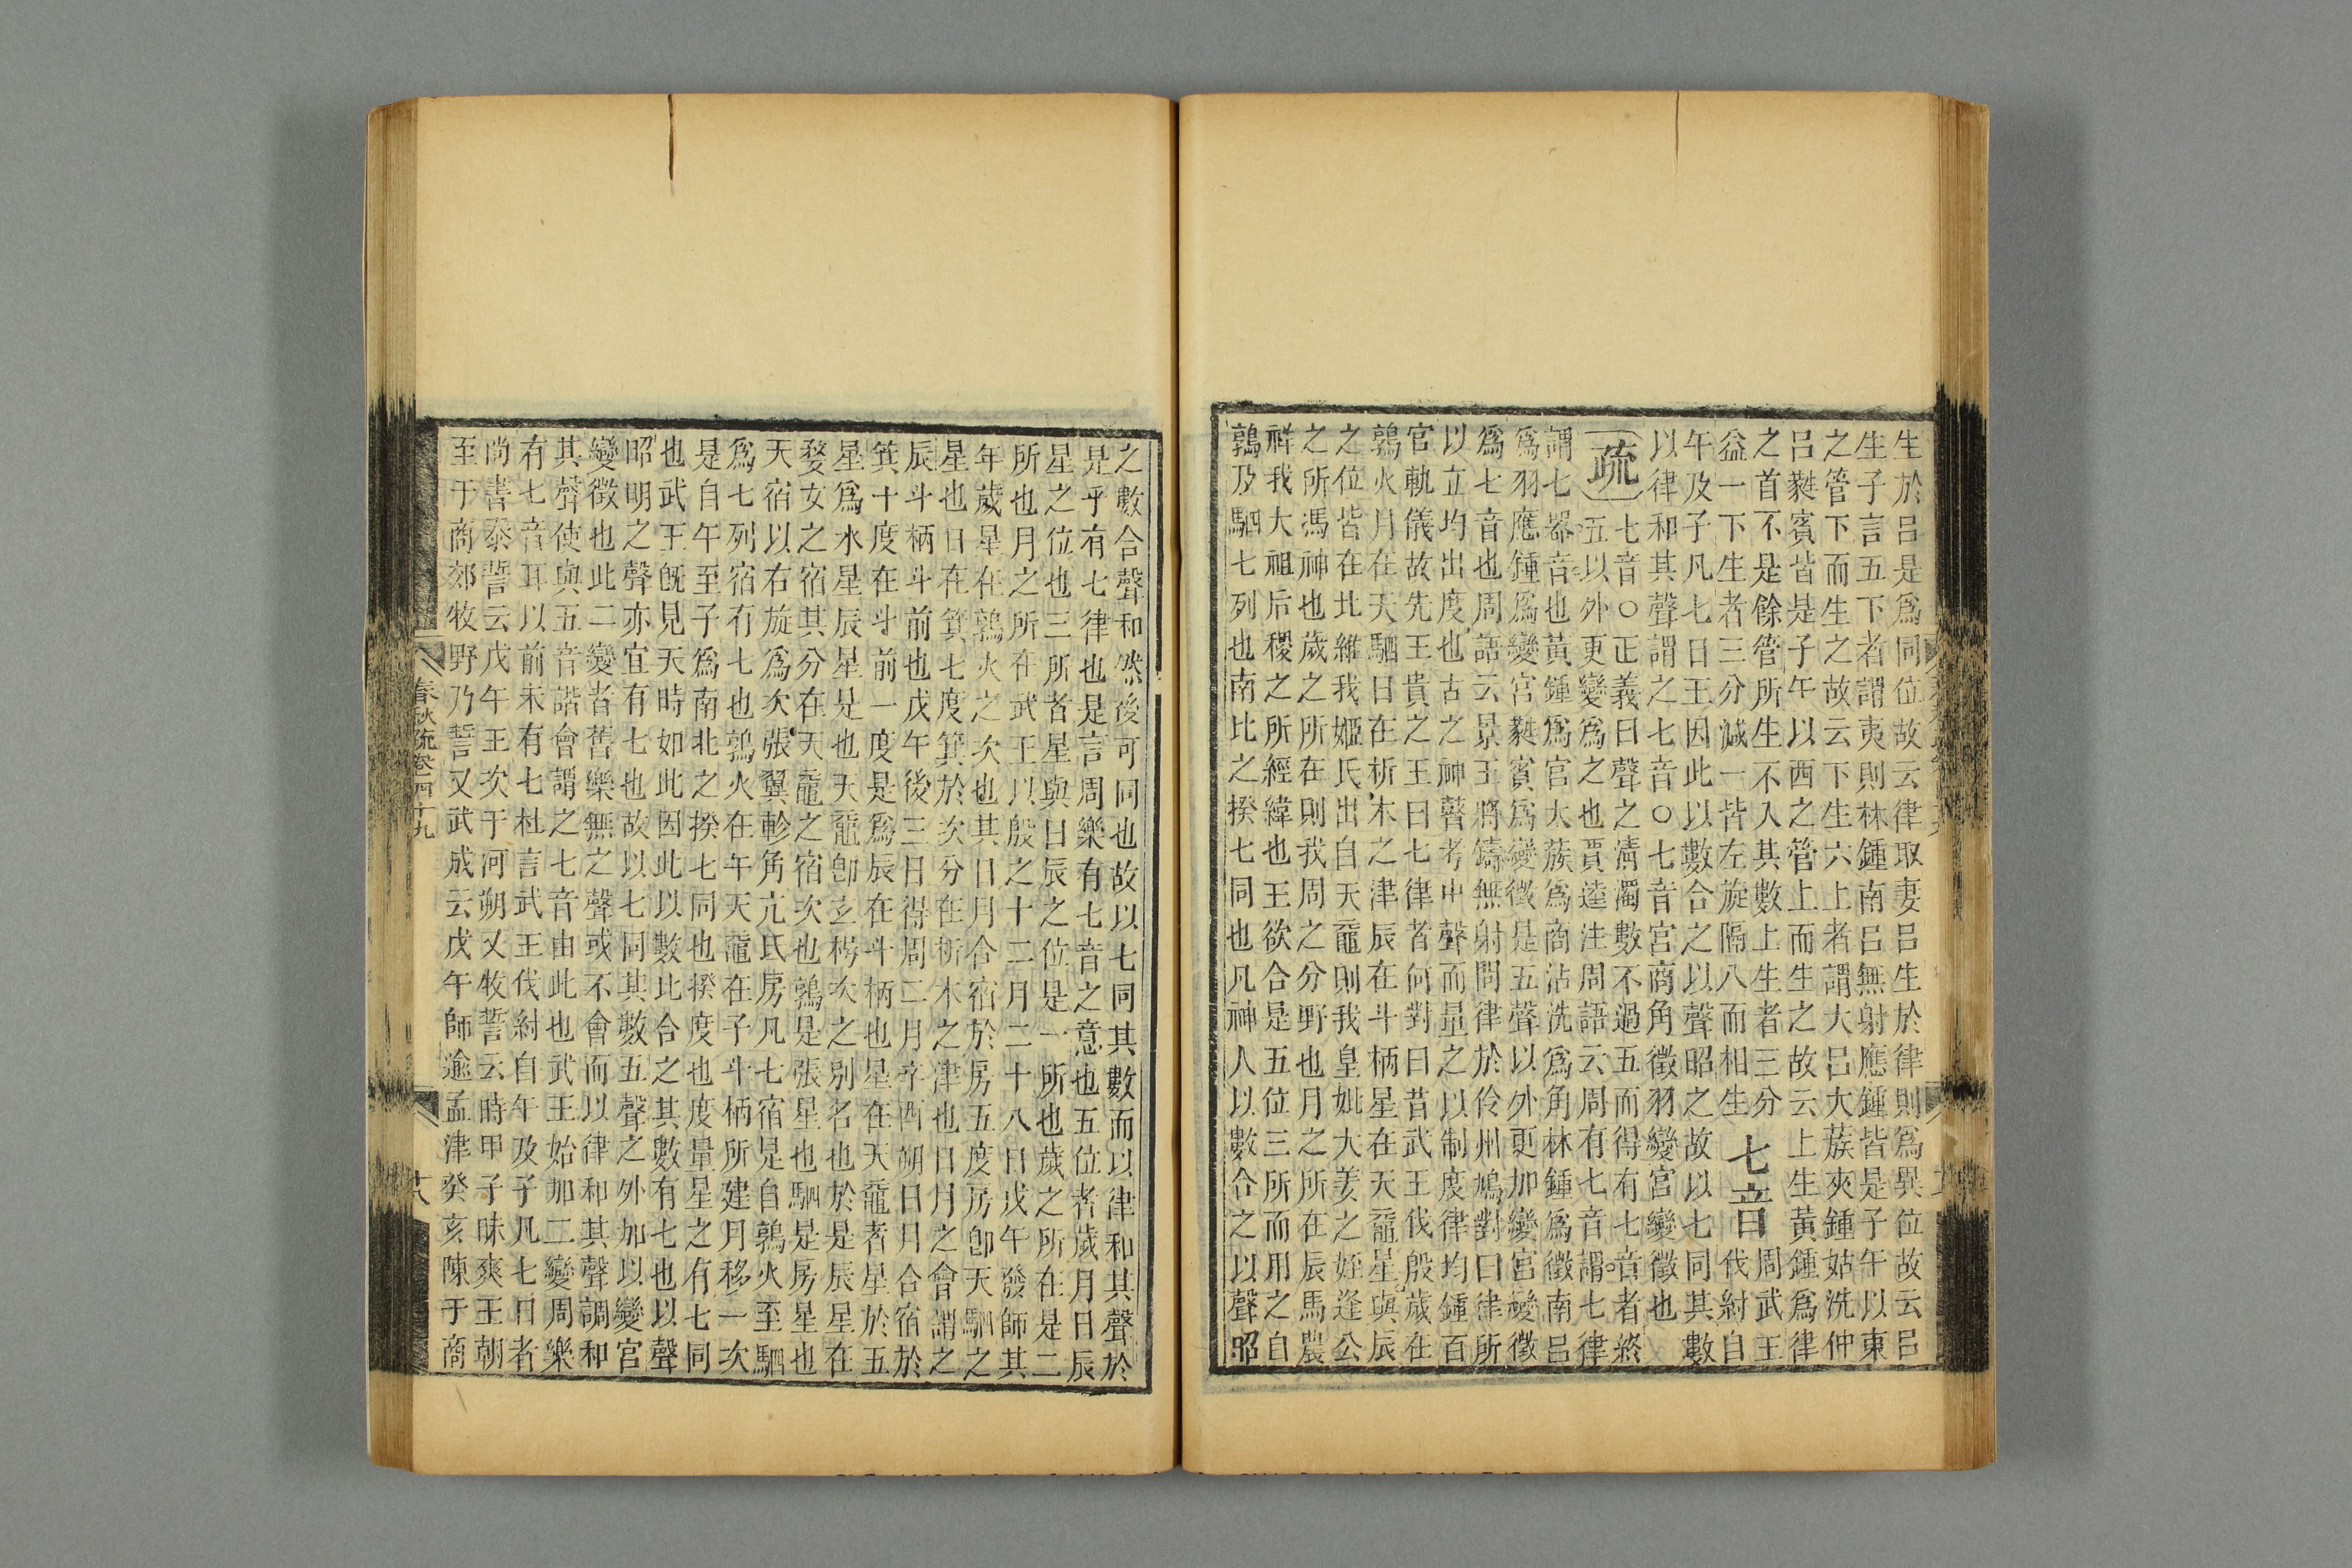 生於呂是爲同位故云律取妻呂生於律則爲異位故云呂
生子言五下者謂夷則林鍾南呂無射應鍾皆是子午以東
之管下而生之故云下生六上者謂大呂大蔟夾鍾姑洗仲
呂蕤賓皆是子午以西之管上而生之故云上生黃鍾爲律
之首不是餘管所生不入其數上生者三分
益一下生者三分減一皆左旋隔八而相生
七音
周武王
伐紂自
午及子凡七日王因此以數合之以聲昭之故以七同其數
以律和其聲謂之七音○七音宮商角徵羽變宮變徵也
疏
七音○正義曰聲之清濁數不過五而得有七音者終
五以外更變爲之也賈逵注周語云周有七音謂七律
謂七器音也黃鍾爲宮大蔟爲商沽洗爲角林鍾爲徵南呂
爲羽應鍾爲變宮蕤賓爲變徵是五聲以外更加變宮變徵
爲七音也周語云景王將鑄無射問律於伶州鳩對曰律所
以立均出度也古之神瞽考中聲而量之以制度律均鍾百
官軌儀故先王貴之王曰七律者何對曰昔武王伐殷歲在
鶉火月在天駟日在析木之津辰在斗柄星在天黿星與辰
之位皆在北維我姬氏出自天黿則我皇妣大姜之姪逢公
之所馮神也歲之所在則我周之分野也月之所在辰馬農
祥我大祖后稷之所經緯也王欲合是五位三所而用之自
鶉及駟七列也南北之揆七同也凡神人以數合之以聲昭
之數合聲和然後可同也故以七同其數而以律和其聲於
是乎有七律也是言周樂有七音之意也五位者歲月日辰
星之位也三所者星與日辰之位是一所也歲之所在是二
所也月之所在武王以殷之十二月二十八日戊午發師其
年歲星在鶉火之次也其日月合宿於房五度房卽天駟之
星也日在箕七度箕於次分在析木之津也日月之會謂之
辰斗柄斗前也戊午後三日得周二月辛酉朔日月合宿於
箕十度在斗前一度是爲辰在斗柄也星在天黿者星於五
星爲水星辰星是也天黿卽玄枵次之別名也於是辰星在
婺女之宿其分在天黿之宿次也鶉是張星也駟是房星也
天宿以右旋爲次張翼軫角亢氐房凡七宿是自鶉火至駟
爲七列宿有七也鶉火在午天黿在子斗柄所建月移一次
是自午至子爲南北之揆七同也揆度也度量星之有七同
也武王旣見天時如此因此以數比合之其數有七也以聲
昭明之聲亦宜有七也故以七同其數五聲之外加以變宮
變徵也此二變者舊樂無之聲或不會而以律和其聲調和
其聲使與五音諧會謂之七音由此也武王始加二變周樂
有七音耳以前未有七杜言武王伐紂自午及子凡七日者
尚書泰誓云戊午王次于河朔又牧誓云時甲子昧爽王朝
至于商郊牧野乃誓又武成云戊午師逾孟津癸亥陳于商
春秋疏卷四十九
十八